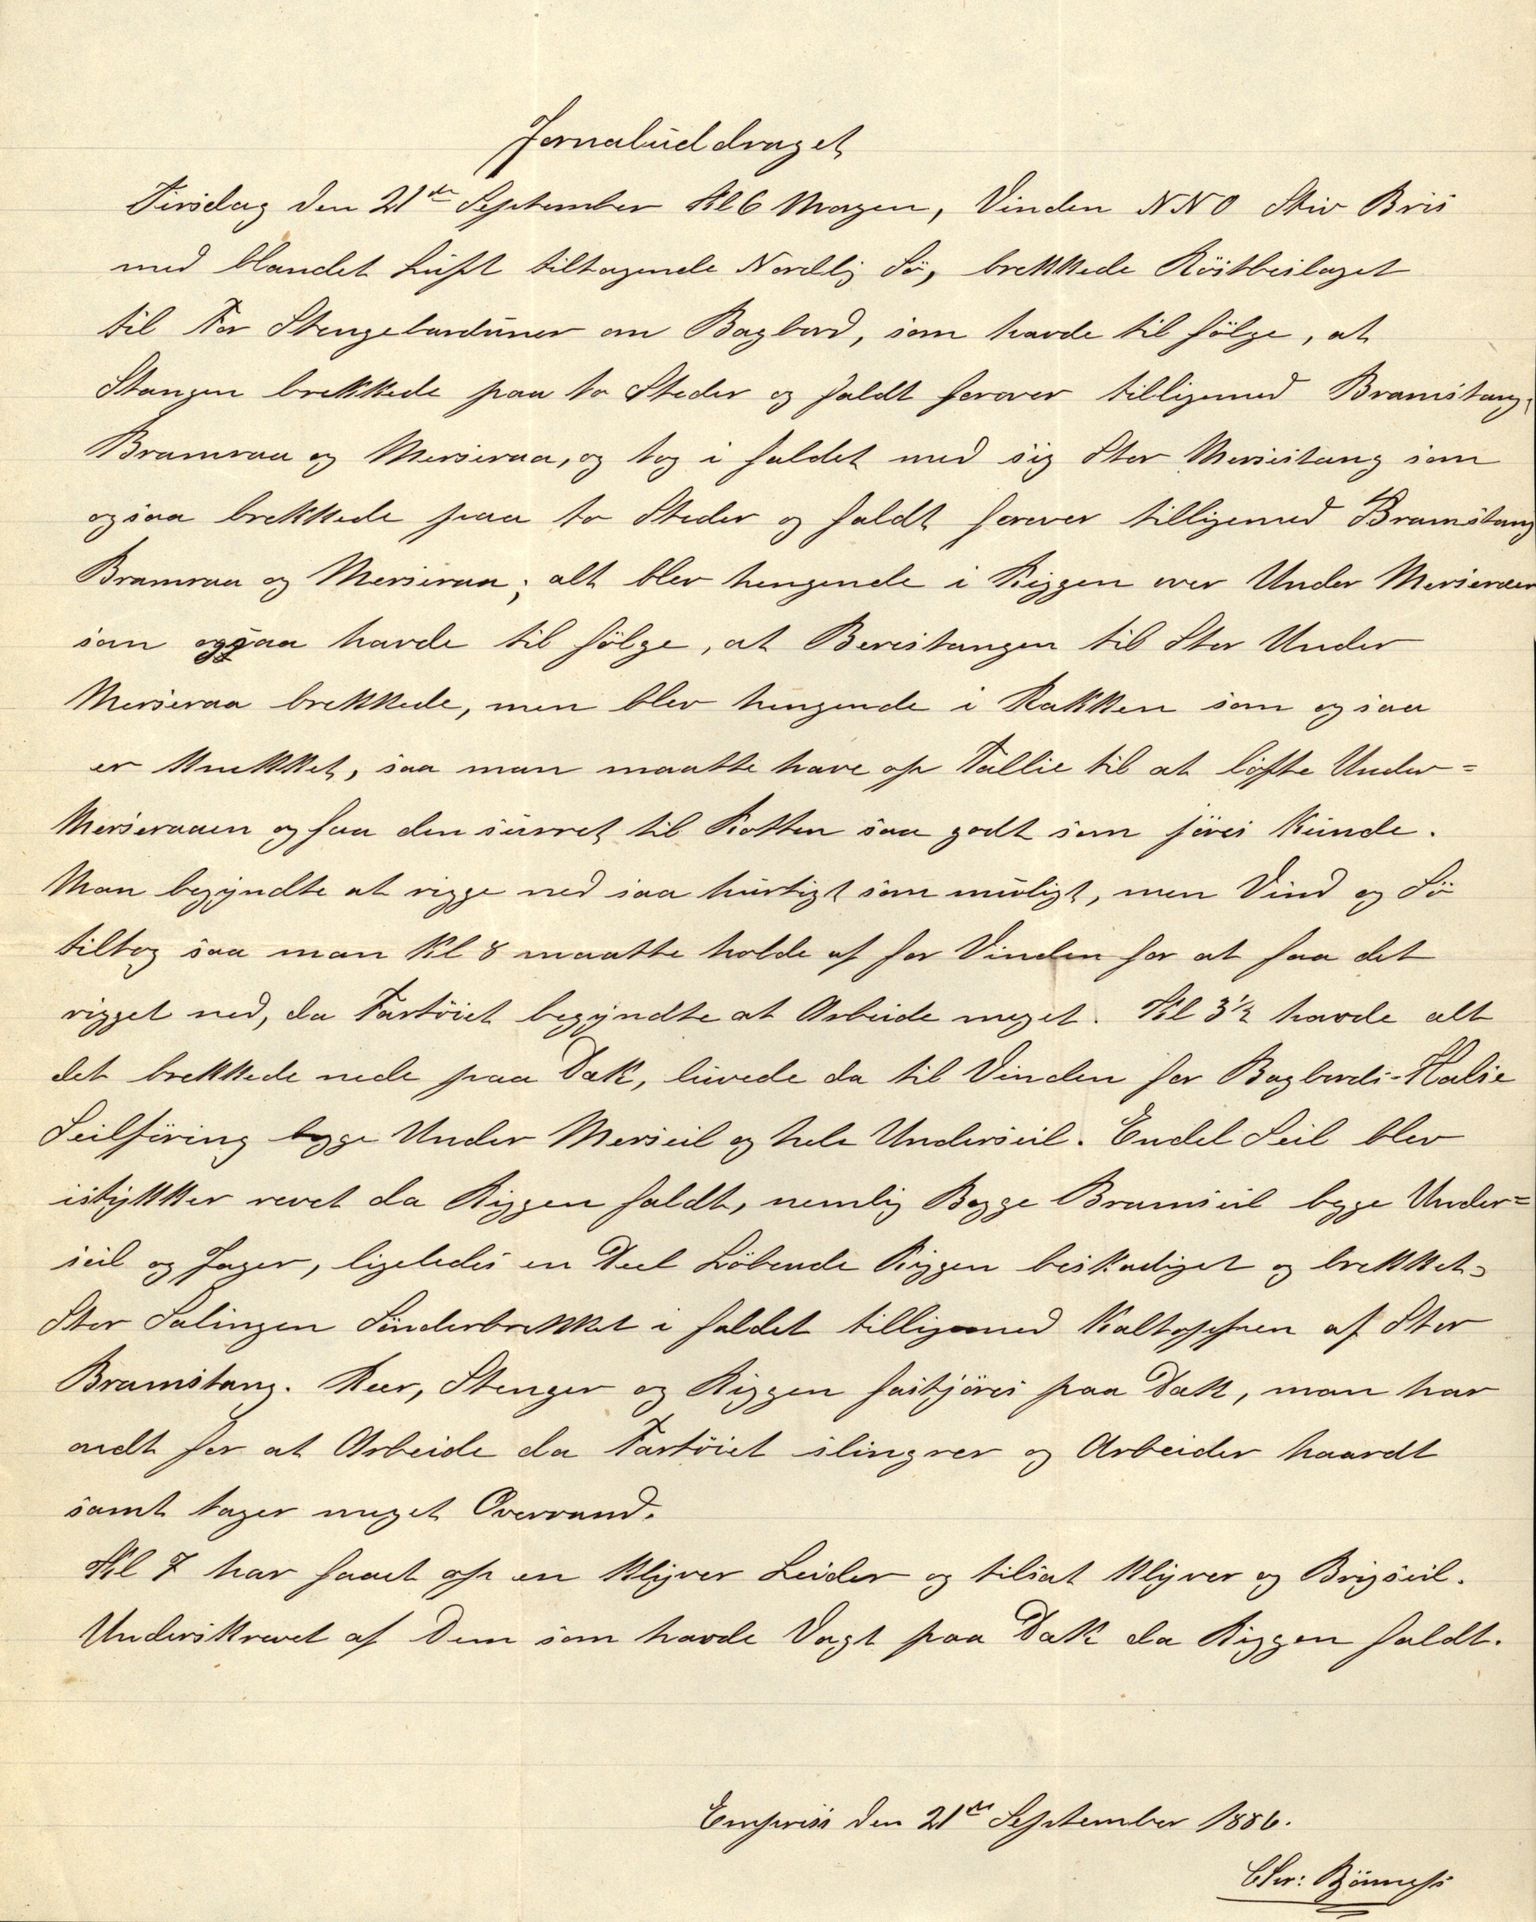 Jornaluddraget
Tirsdag den 21de September Kl 6 Morgen, Vinden NNO Stiv Bris
med blandet Luft tiltagende Nordlig Sö, brekkede Röstbeslaget
til For Stengebarduner om Bagbord, som havde til fölge, at
Stangen brekkede paa to Steder og faldt forover tilligemed Bramstang,
Bramraa og Merseraa, og tog i faldet med sig Stor Mersestang som
ogsaa brekkede paa to Steder og faldt forover tilligemed Bramstang
Bramraa og Merseraa; alt blev hengende i Riggen over Under Merseraaer
som ogsaa havde til fölge, at Berestangen til Stor Under
Merseraa brekkede, men blev hengende i Rakken som ogsaa
er knekket, saa man maatte have op Tallie til at löfte Under=
Merseraaen og faa den surret til Rotten saa godt som göres kunde.
Man begyndte at rigge ned saa hurtigt som muligt, men Vind og Sö
tiltog saa man Kl 8 maatte holde af for Vinden for at faa det
rigget ned, da Fartöiet begyndte at Arbeide meget. Kl 3½ havde alt
det brekkede nede paa Dæk, luvede da til Vinden for Bagbords-Halse
Seilföring begge Under Merseil og hele Underseil. Endel Seil blev
istykker revet da Riggen faldt, nemlig Begge Bramseil begge Under=
seil og Jager, ligeledes en Deel Löbende Riggen beskadiget og brekket.
Stor Salingen Sönderbrekket i faldet tilligemed Kaltoppen af Stor
Bramstang. Reer, Stenger og Riggen fastgöres paa Dæk, man har
ondt for at Arbeide da Fartöiet slingrer og Arbeider haardt
samt tager meget Overvand.
Kl 7 har faaet op en Klyver Leider og tilsat Klyver og Brigseil.
Underskrevet af Dem som havde Vagt paa Dæk da Riggen faldt.
Empriss den 21de September 1886.
Chr: Bjönness